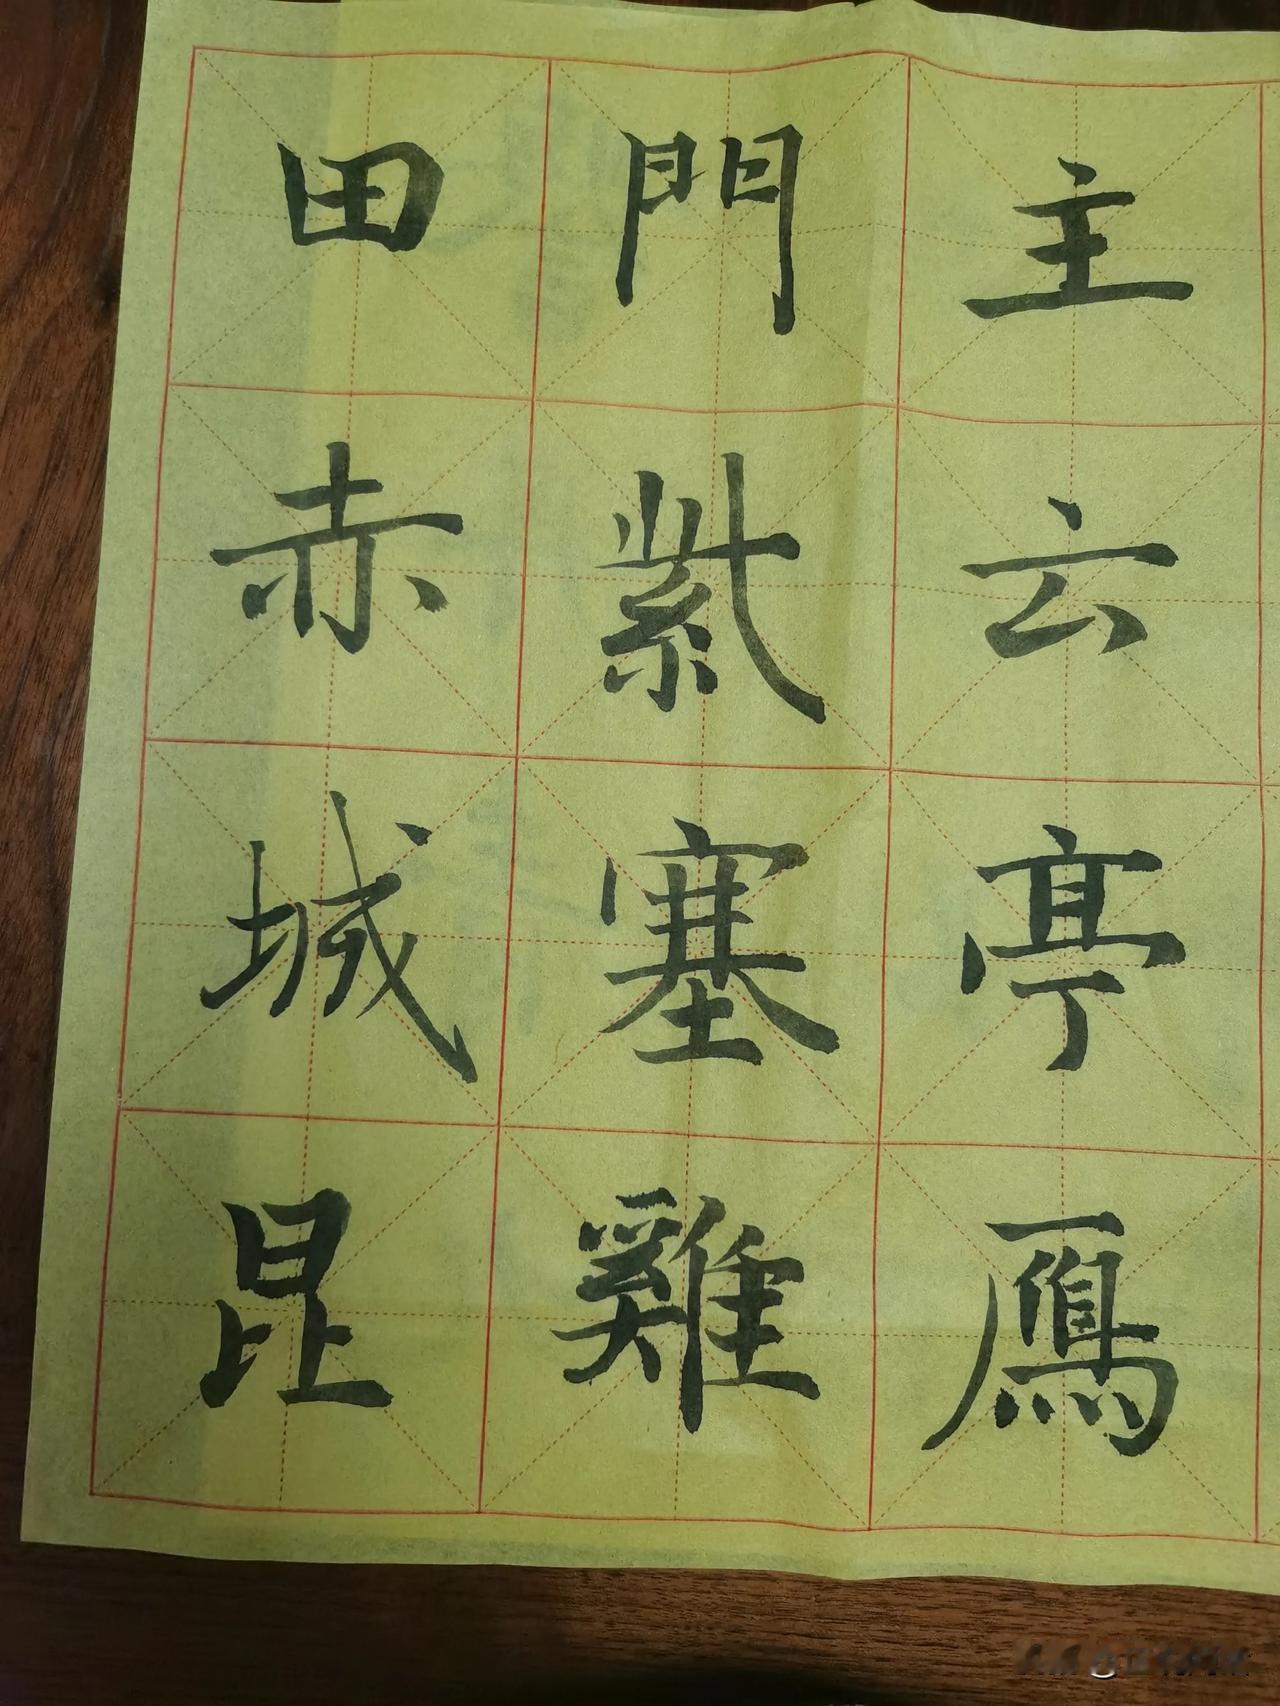 主云亭鴈
門紫塞雞
田赤城昆